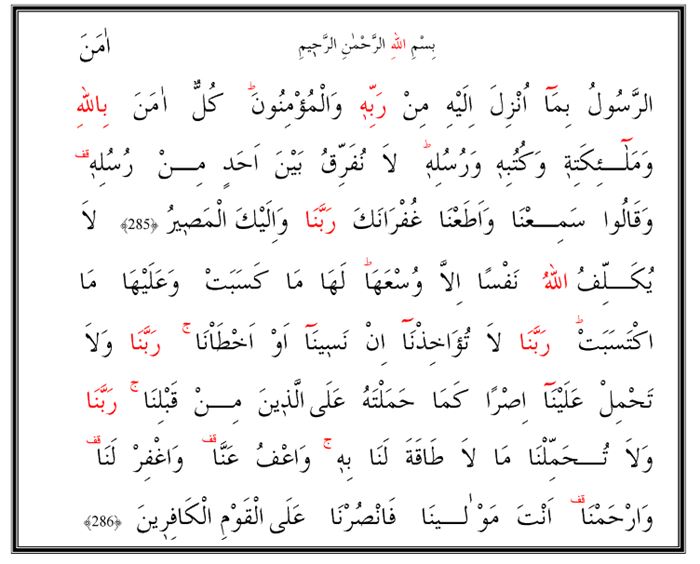 بِسْمِ اللهِ الرَّحْمٰنِ الرَّحٖيمِ اٰمَنَ
الرَّسُولُ بِمَٓا اُنْزِلَ اِلَيْهِ مِنْ رَبِّهٖ وَالْمُؤْمِنُونَؕ كُلٌّ اٰمَنَ بِاللهِ
وَمَلٰٓـئِكَتِهٖ وَكُتُبِهٖ وَرُسُلِهٖؕ لَا نُفَرِّقُ بَيْنَ اَحَدٍ مِـنْ رُسُلِهٖࣞ
وَقَالُوا سَمِـعْنَا وَاَطَعْنَا غُفْرَانَكَ رَبَّنَا وَاِلَيْكَ الْمَصٖيرُ ﴿285﴾ لَا
يُكَـلِّفُ اللهُ نَفْسًا اِلَّا وُسْعَهَاؕ لَهَا مَا كَسَبَتْ وَعَلَيْهَا مَا
اكْتَسَبَتْؕ رَبَّنَا لَا تُؤَاخِذْنَٓا اِنْ نَسٖينَٓا اَوْ اَخْطَاْنَاۚ رَبَّنَا وَلَا
تَحْمِلْ عَلَيْنَٓا اِصْرًا كَمَا حَمَلْتَهُ عَلَى الَّذٖينَ مِـنْ قَبْلِنَاۚ رَبَّنَا
وَلَا تُـحَمِّلْنَا مَا لَا طَاقَةَ لَنَا بِهٖۚ وَاعْفُ عَنَّاࣞ وَاغْفِرْ لَنَاࣞ
وَارْحَمْنَاࣞ اَنْتَ مَوْلٰـينَا فَانْصُرْنَا عَلَى الْقَوْمِ الْكَافِرٖينَ ﴿286﴾